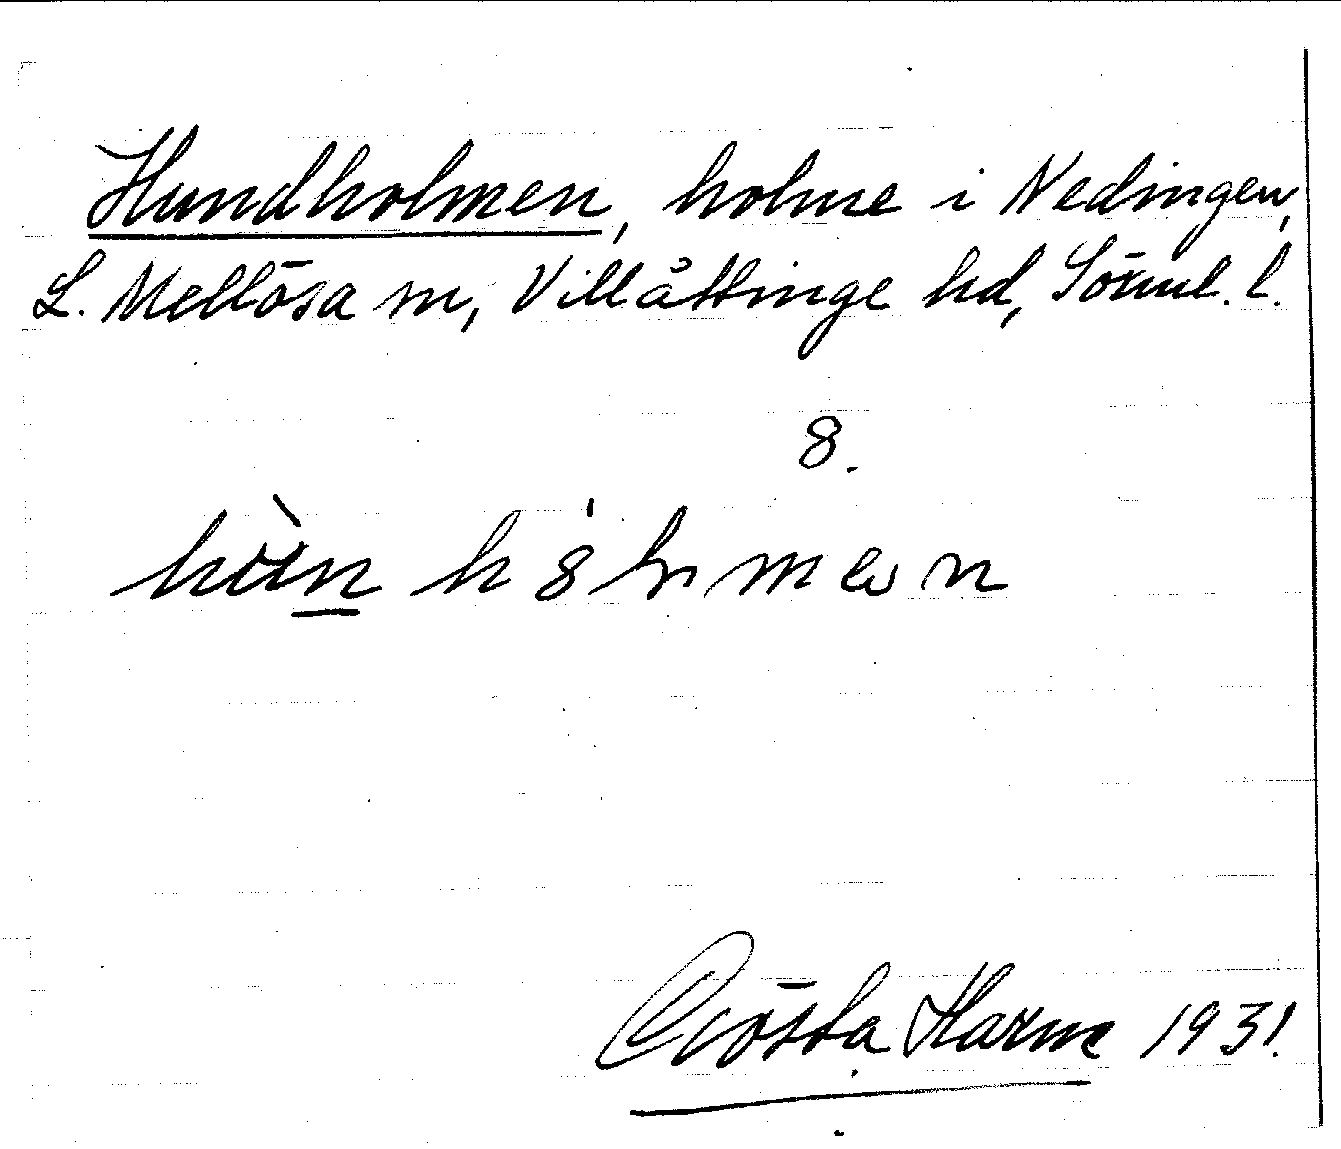 Hundholmen, holme i Nedingen,
L. Mellösa sn, Villåttinge hd, Sörml. l.
8.
Gösta Harme 1931.